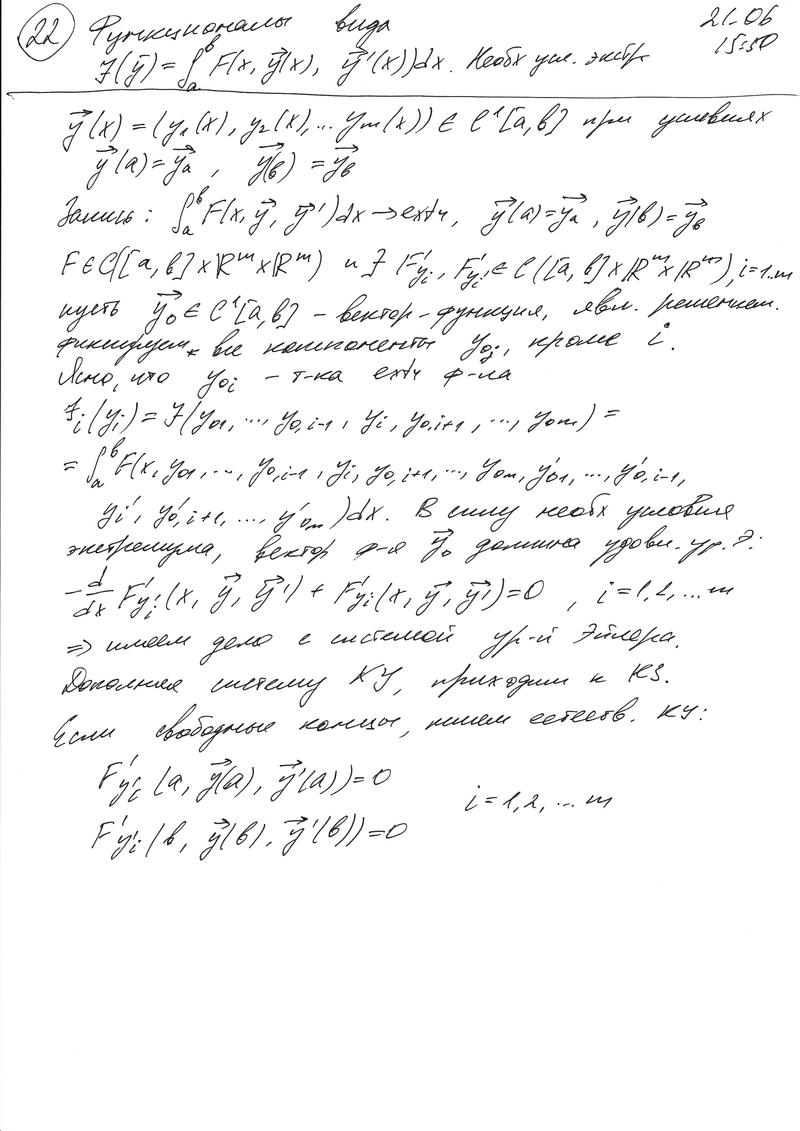 22 Функционалы вида 21-06
J(ȳ) = ∫ₐᵇ F(x, y⃗(x), y⃗'(x))dx. Необх усл. экстр 15:50
y⃗(x) = (y₁(x), y₂(x), ... yₘ(x)) ∈ C¹[a,b] при условиях
y⃗(a) = y⃗ₐ, y⃗(в) = y⃗в
Запись: ∫ₐᵇ F(x, y⃗, y⃗')dx → extr, y⃗(a) = y⃗ₐ, y⃗(в) = y⃗в
F ∈ C([a,b]×ℝᵐ×ℝᵐ) и ∃ F'yᵢ, F'yᵢ' ∈ C([a,b]×ℝᵐ×ℝᵐ), i=1..m
пусть y⃗₀ ∈ C¹[a,b] – вектор-функция, явл. решением.
фиксируем все компоненты y₀ⱼ, кроме i.
Ясно, что y₀ᵢ – т-ка extr ф-ла
Jᵢ(yᵢ) = J(y₀₁, ..., y₀,ᵢ₋₁, yᵢ, y₀,ᵢ₊₁, ..., y₀ₘ) =
= ∫ₐᵇ F(x, y₀₁, ..., y₀,ᵢ₋₁, yᵢ, y₀,ᵢ₊₁, ..., y₀ₘ, y'₀₁, ..., y'₀,ᵢ₋₁,
yᵢ', y'₀,ᵢ₊₁, ..., y'₀ₘ)dx. В силу необх условия
экстремума, вектор ф-я y⃗₀ должна удовл. ур. Э:
-d/dx F'yᵢ'(x, y⃗, y⃗') + F'yᵢ(x, y⃗, y⃗') = 0, i=1,2,...m
=> имеем дело с системой ур-й Эйлера.
Дополняя систему КУ, приходим к КЗ.
Если свободные концы, пишем естеств. КУ:
F'yᵢ'(a, y⃗(a), y⃗'(a)) = 0
i=1,2,...m
F'yᵢ'(в, y⃗(в), y⃗'(в)) = 0